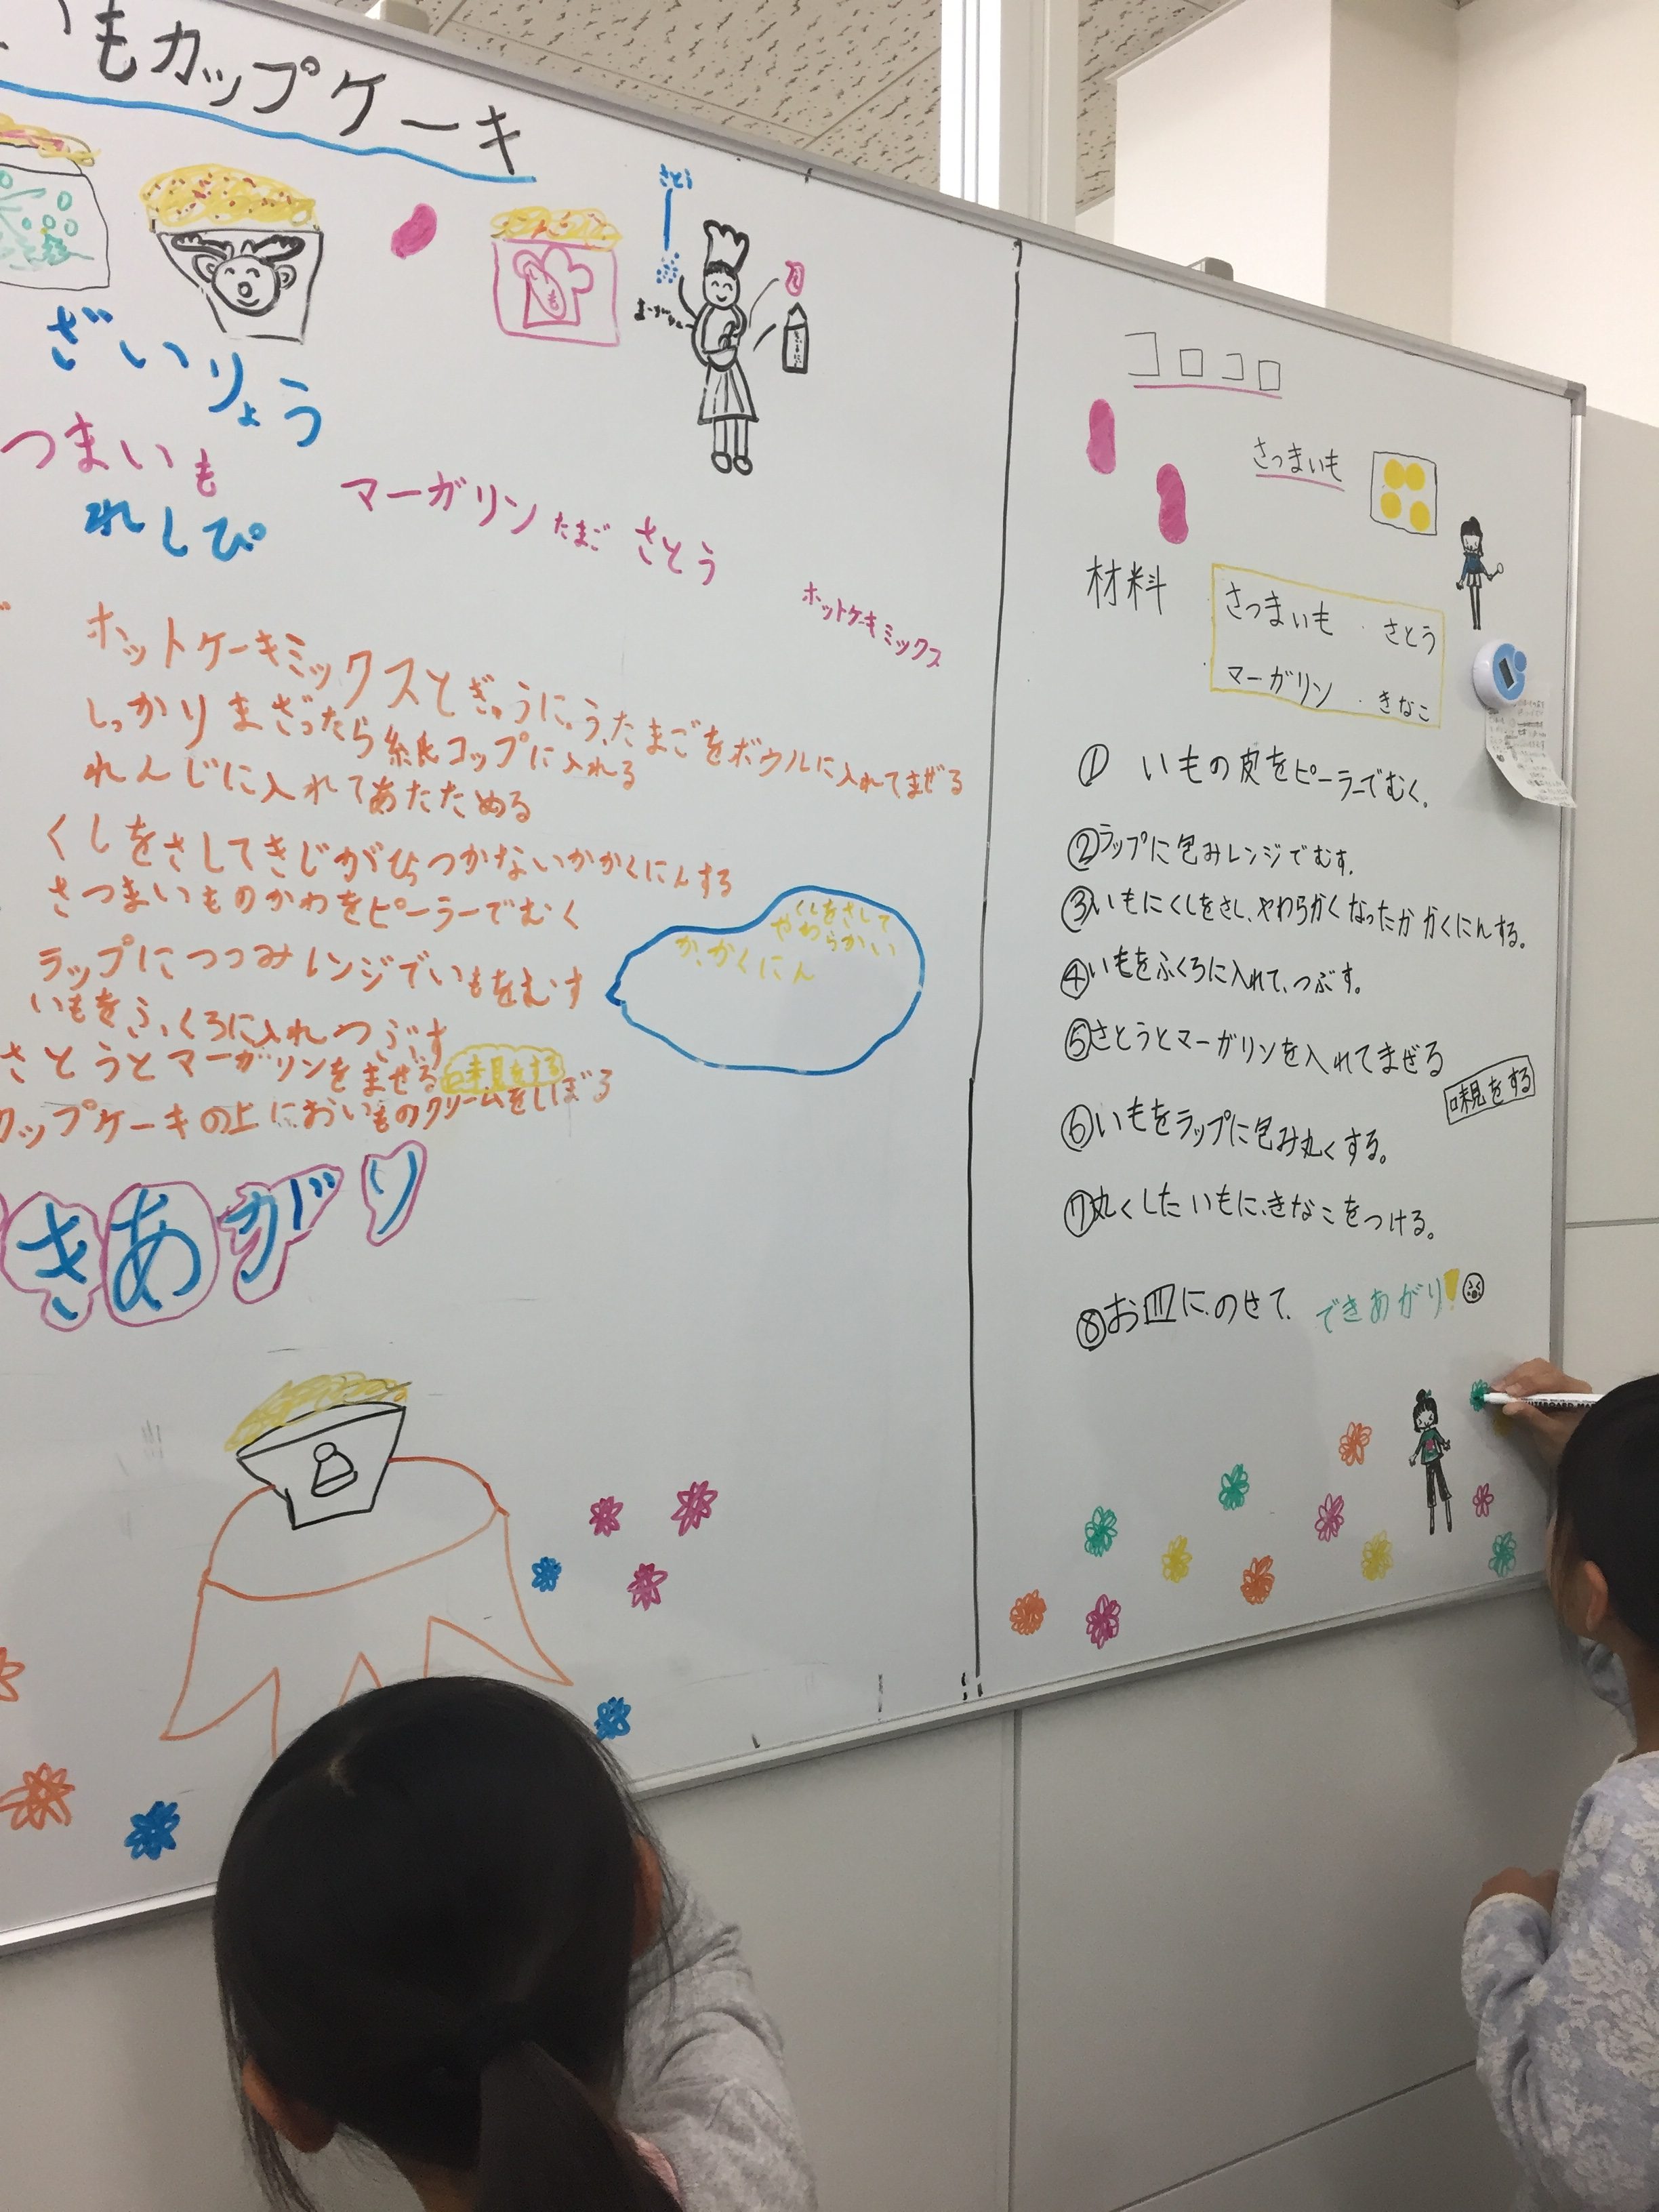 いもカップケーキ
さとう
ざいりょう
つまいも
マーガリン たまご さとう
ホットケーキミックス
れしぴ
ホットケーキミックスとぎゅうにゅう、たまごをボウルに入れてまぜる
しっかりまざったら紙コップに入れる
れんじに入れてあたためる
くしをさしてきじがひっつかないかかくにんする
さつまいものかわをピーラーでむく
ラップにつつみレンジでいもをむす
くしをさして
やわらかい
か、かくにん
いもをふくろに入れつぶす
さとうとマーガリンをまぜる 味見をする
カップケーキの上においものクリームをしぼる
きあがり
コロコロ
さつまいも
材料
さつまいも ・さとう
・マーガリン ・きなこ
① いもの皮をピーラーでむく。
②ラップに包みレンジでむす。
③いもにくしをさし、やわらかくなったか かくにんする。
④いもをふくろに入れて、つぶす。
⑤さとうとマーガリンを入れてまぜる
味見をする
⑥いもをラップに包み丸くする。
⑦丸くしたいもに、きなこをつける。
⑧お皿に、のせて、できあがり!